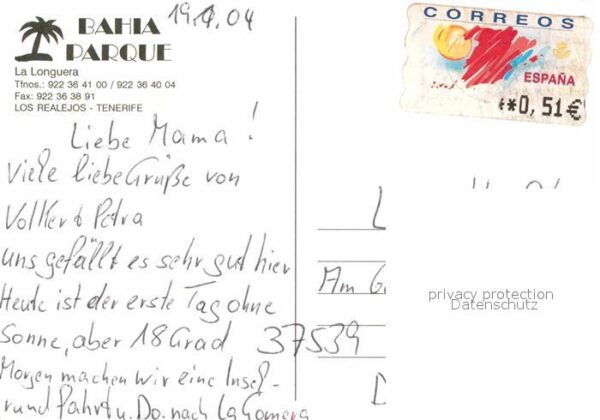 BAHIA
PARQUE
La Longuera
Tfnos.: 922 36 41 00 / 922 36 40 04
Fax: 922 36 38 91
LOS REALEJOS - TENERIFE
CORREOS
ESPAÑA
**0,51€
Liebe Mama!
Viele liebe Grüße von
Volker & Petra
uns gefällt es sehr gut hier
Heute ist der erste Tag ohne
Sonne, aber 18 Grad
Morgen machen wir eine Insel-
rundfahrt u. Do. nach La Gomera
L
Am G
37539
D
privacy protection
Datenschutz